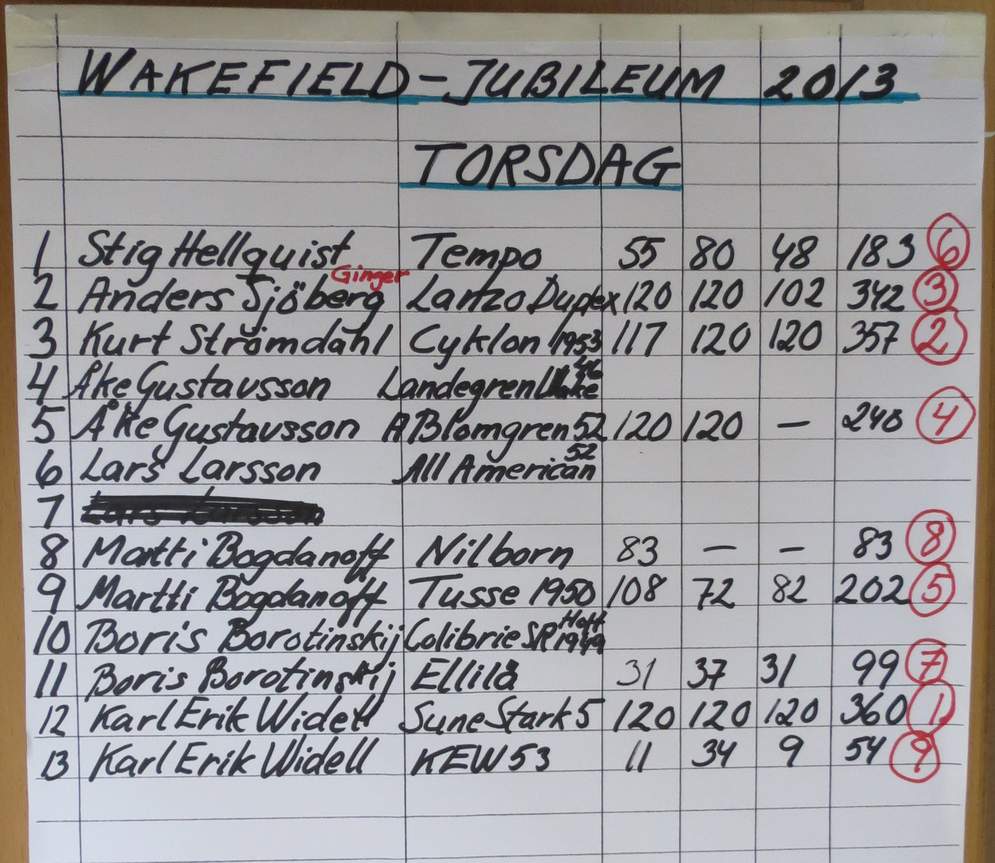 WAKEFIELD-JUBILEUM 2013
TORSDAG
1 Stig Hellquist Tempo 55 80 48 183 6
Ginger
2 Anders Sjöberg Lanzo Duplex 120 120 102 342 3
3 Kurt Strömdahl Cyklon 1953 117 120 120 357 2
4 Åke Gustavsson Landegren Wake
5 Åke Gustavsson A Blomgren 52 120 120 – 240 4
6 Lars Larsson All American 52
7
8 Martti Bogdanoff Nilborn 83 – – 83 8
9 Martti Bogdanoff Tusse 1950 108 72 82 202 5
10 Boris Borotinskij Colibrie SP Hoff 1949
11 Boris Borotinskij Ellilä 31 37 31 99 7
12 Karl Erik Widell Sune Stark 5 120 120 120 360 1
13 Karl Erik Widell KEW 53 11 34 9 54 9